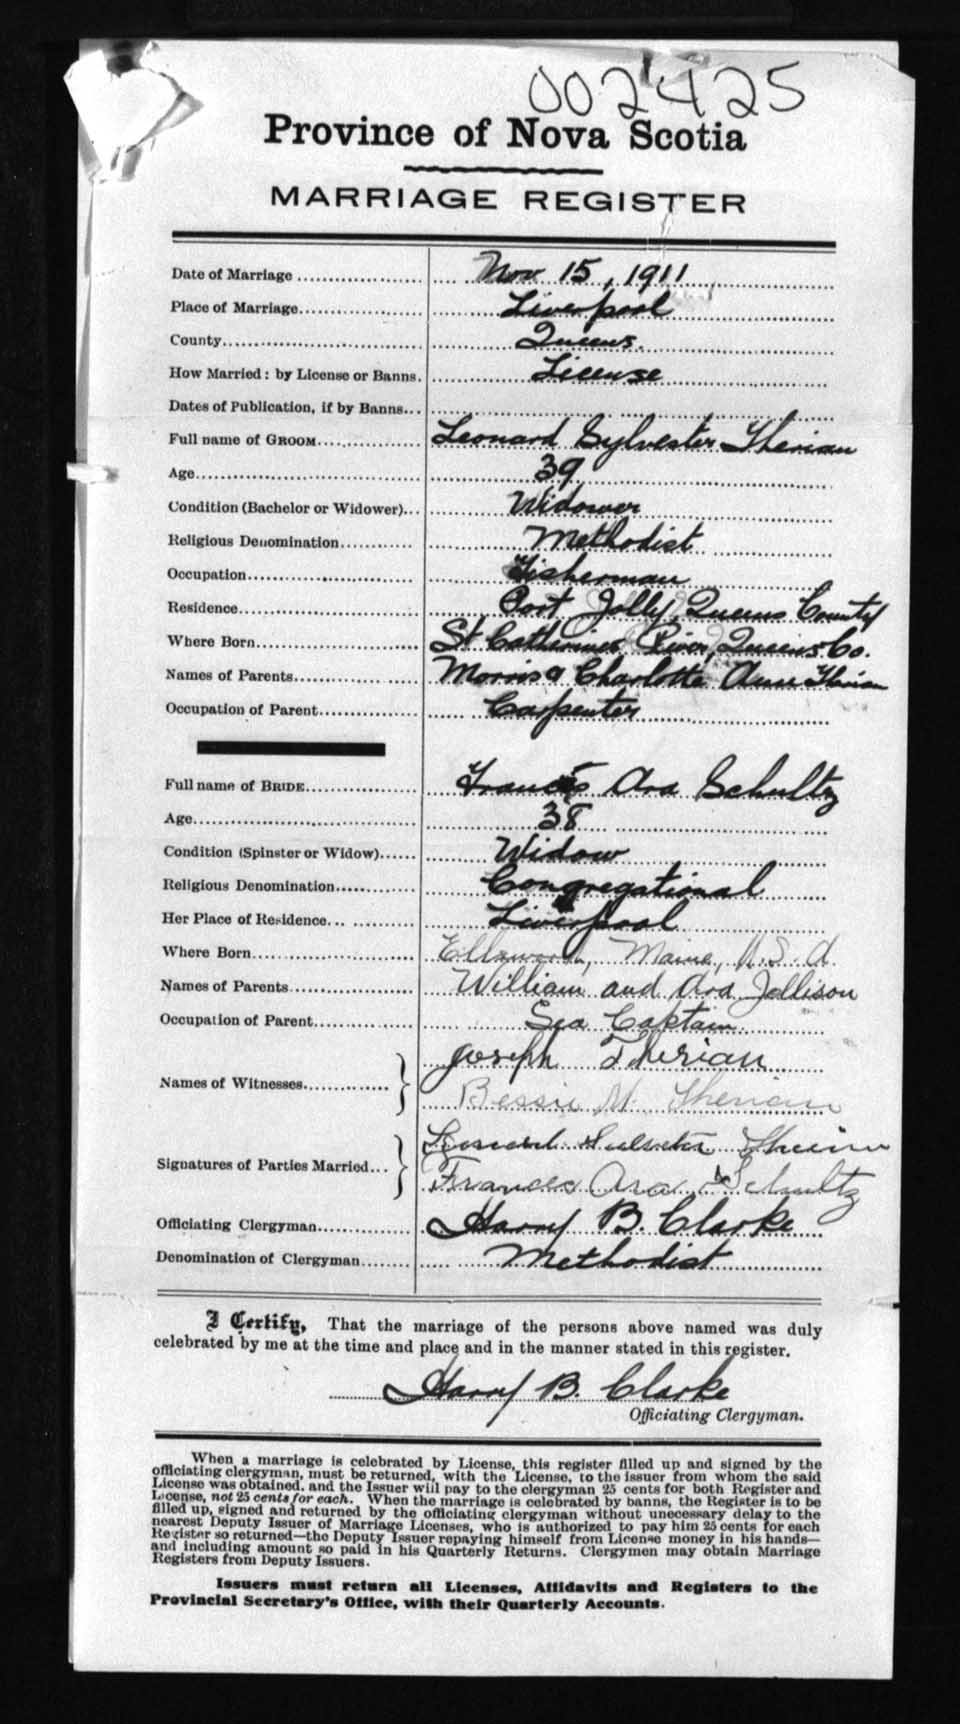 002425
Province of Nova Scotia
MARRIAGE REGISTER
Date of Marriage Nov 15, 1911
Place of Marriage Liverpool
County Queens.
How Married: by License or Banns. License
Dates of Publication, if by Banns...
Full name of GROOM Leonard Sylvester Therian
Age 39
Condition (Bachelor or Widower)... Widower
Religious Denomination Methodist
Occupation Fisherman
Residence Port Jolly, Queens County
Where Born St Catherines River, Queens Co.
Names of Parents Morris & Charlotte Ann Therian
Occupation of Parent Carpenter
Full name of BRIDE Frances Ara Schultz
Age 38
Condition (Spinster or Widow) Widow
Religious Denomination Congregational
Her Place of Residence Liverpool
Where Born Ellsworth, Maine, U.S.A.
Names of Parents William and Ara Jellison
Occupation of Parent Sea Captain
Names of Witnesses Joseph Therian
Bessie M. Therian
Signatures of Parties Married... Leonard Sylvester Therian
Frances Ara Schultz
Officiating Clergyman Harry B. Clarke
Denomination of Clergyman Methodist
I Certify, That the marriage of the persons above named was duly
celebrated by me at the time and place and in the manner stated in this register.
Harry B. Clarke
Officiating Clergyman.
When a marriage is celebrated by License, this register filled up and signed by the
officiating clergyman, must be returned, with the License, to the issuer from whom the said
License was obtained, and the Issuer will pay to the clergyman 25 cents for both Register and
License, not 25 cents for each. When the marriage is celebrated by banns, the Register is to be
filled up, signed and returned by the officiating clergyman without unecessary delay to the
nearest Deputy Issuer of Marriage Licenses, who is authorized to pay him 25 cents for each
Register so returned—the Deputy Issuer repaying himself from License money in his hands—
and including amount so paid in his Quarterly Returns. Clergymen may obtain Marriage
Registers from Deputy Issuers.
Issuers must return all Licenses, Affidavits and Registers to the
Provincial Secretary's Office, with their Quarterly Accounts.